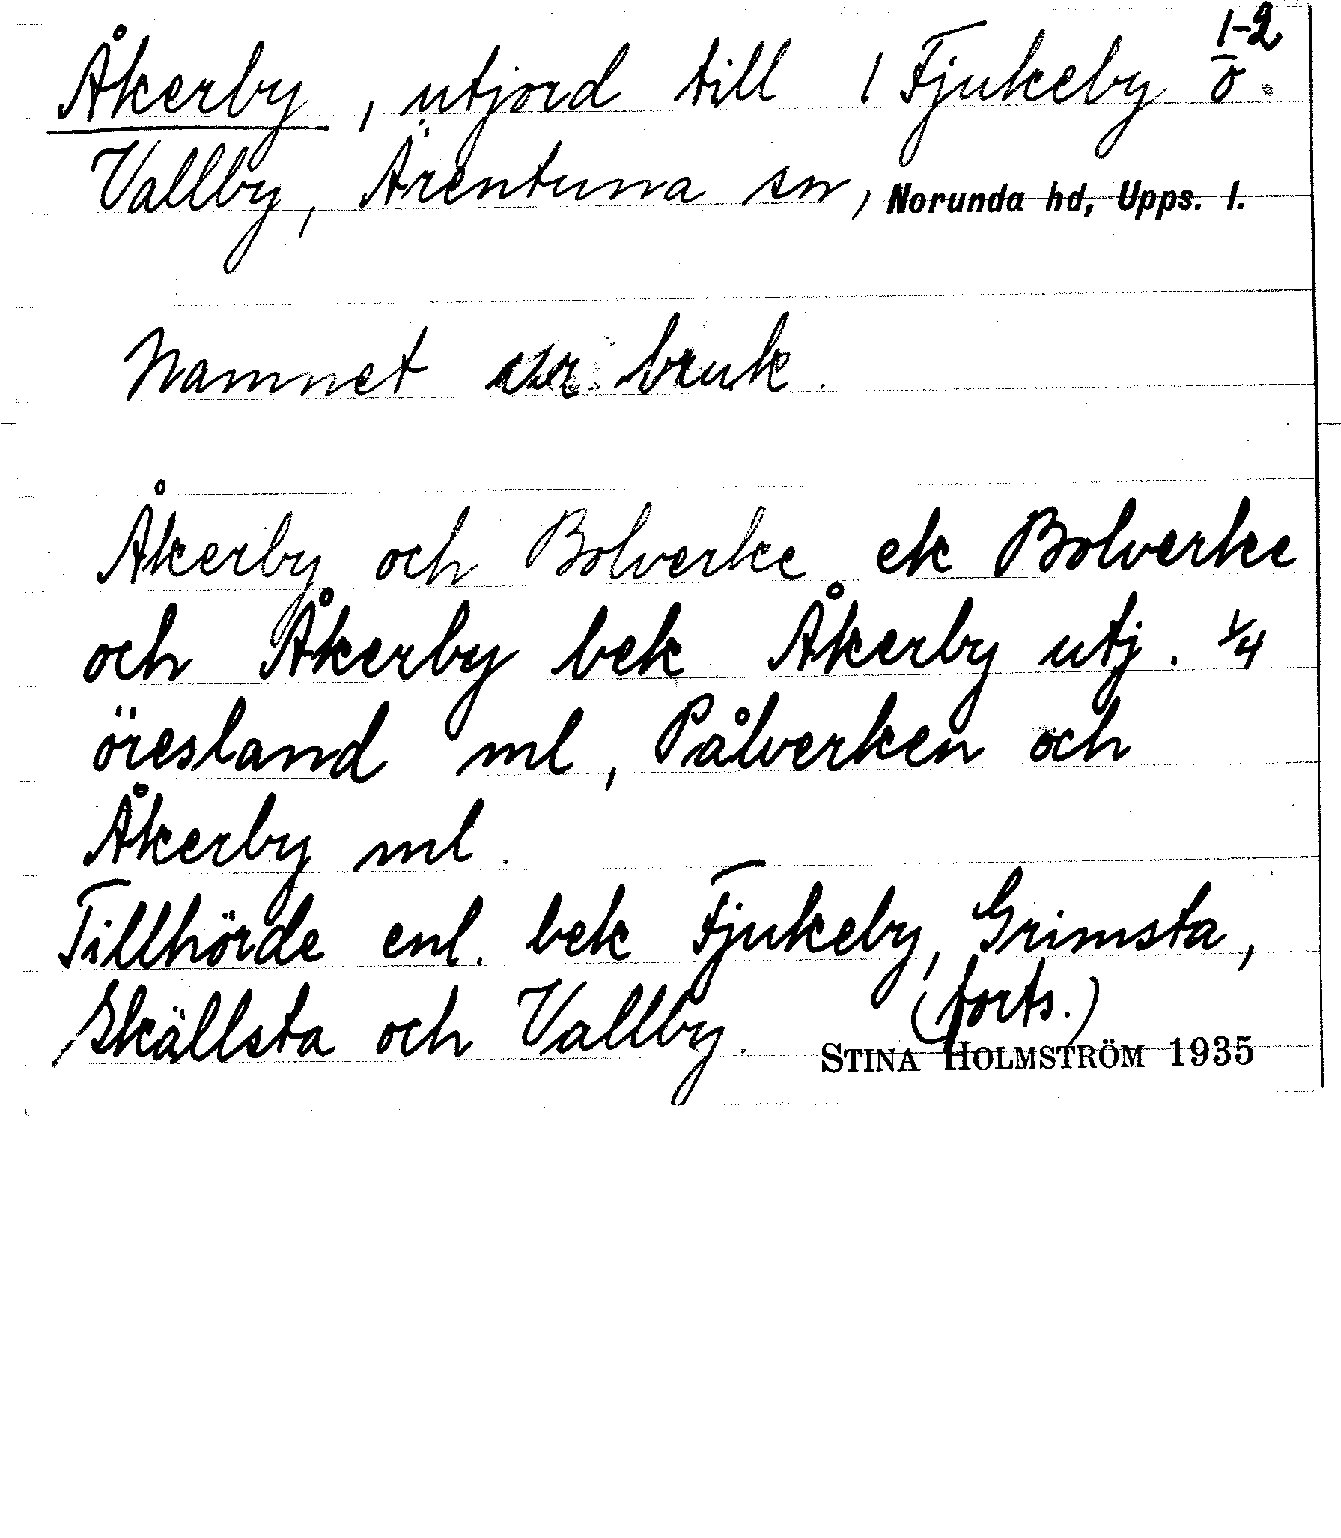 1-2
Åkerby, utjord till 1 Fjukeby o.
Vallby, Ärentuna sn, Norunda hd, Upps. l.
Namnet ur bruk.
Åkerby och Bolverke ek Bolverke
och Åkerby bek Åkerby utj. 1/4
öresland ml, Pålverken och
Åkerby ml.
Tillhörde enl. bek Fjukeby, Grimsta,
Skällsta och Vallby. (forts.)
STINA HOLMSTRÖM 1935